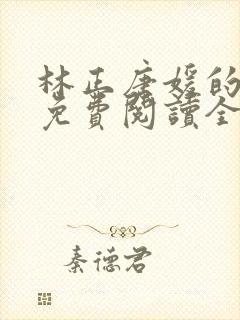 林正唐媛的
免費閱讀全
秦德君